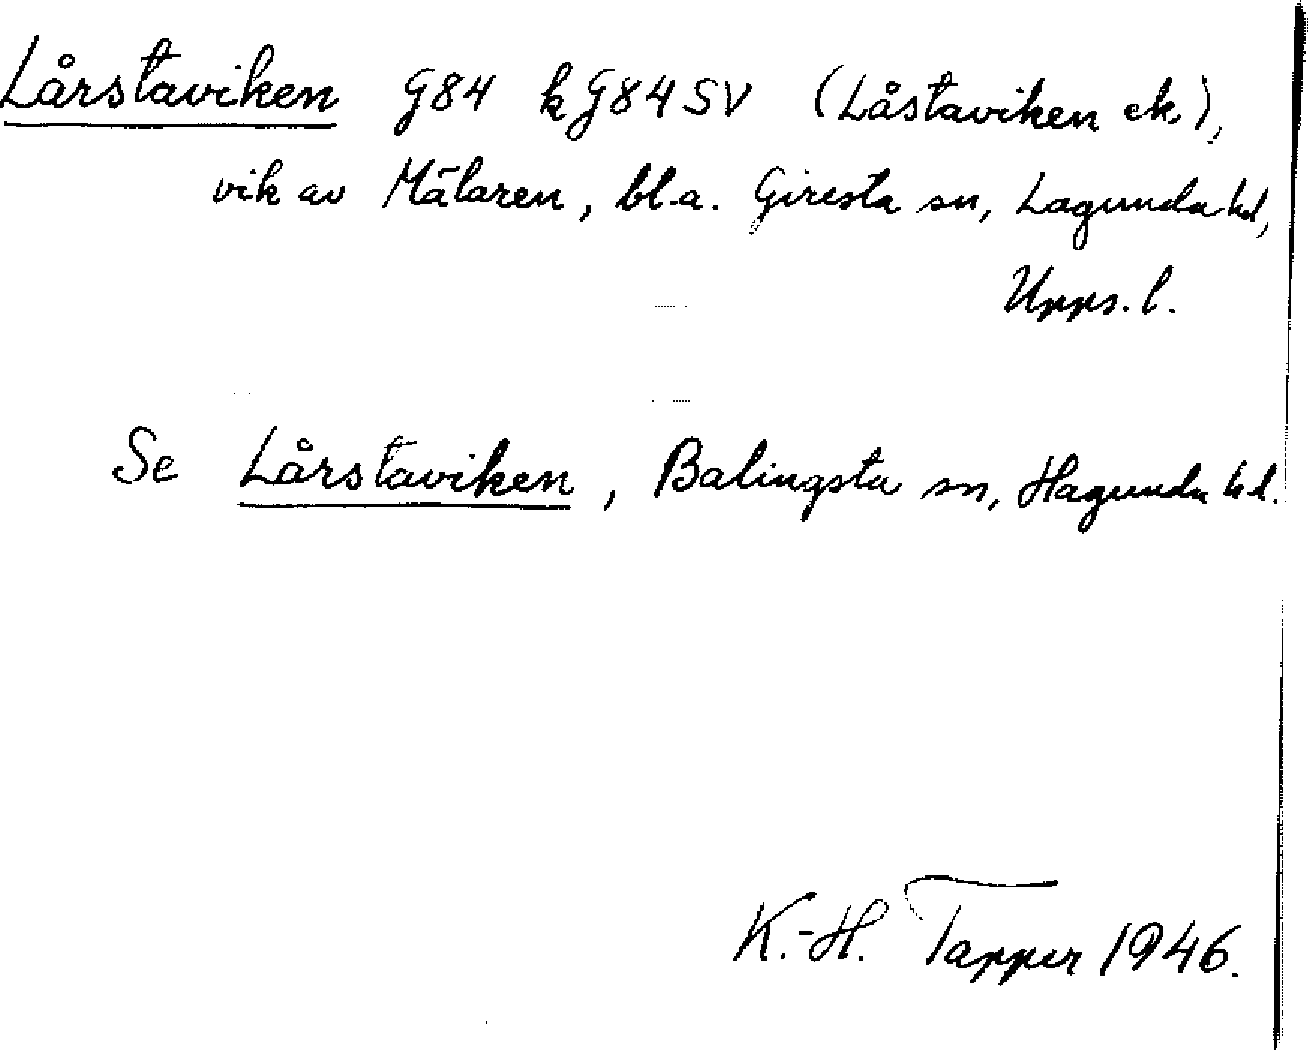 Lårstaviken G84 k G84 SV (Låstaviken ek.),
vik av Mälaren, bl.a. Giresta sn, Lagunda hd,
Upps. l.
Se Lårstaviken, Balingsta sn, Hagunda hd.
K.-H. Tapper 1946.